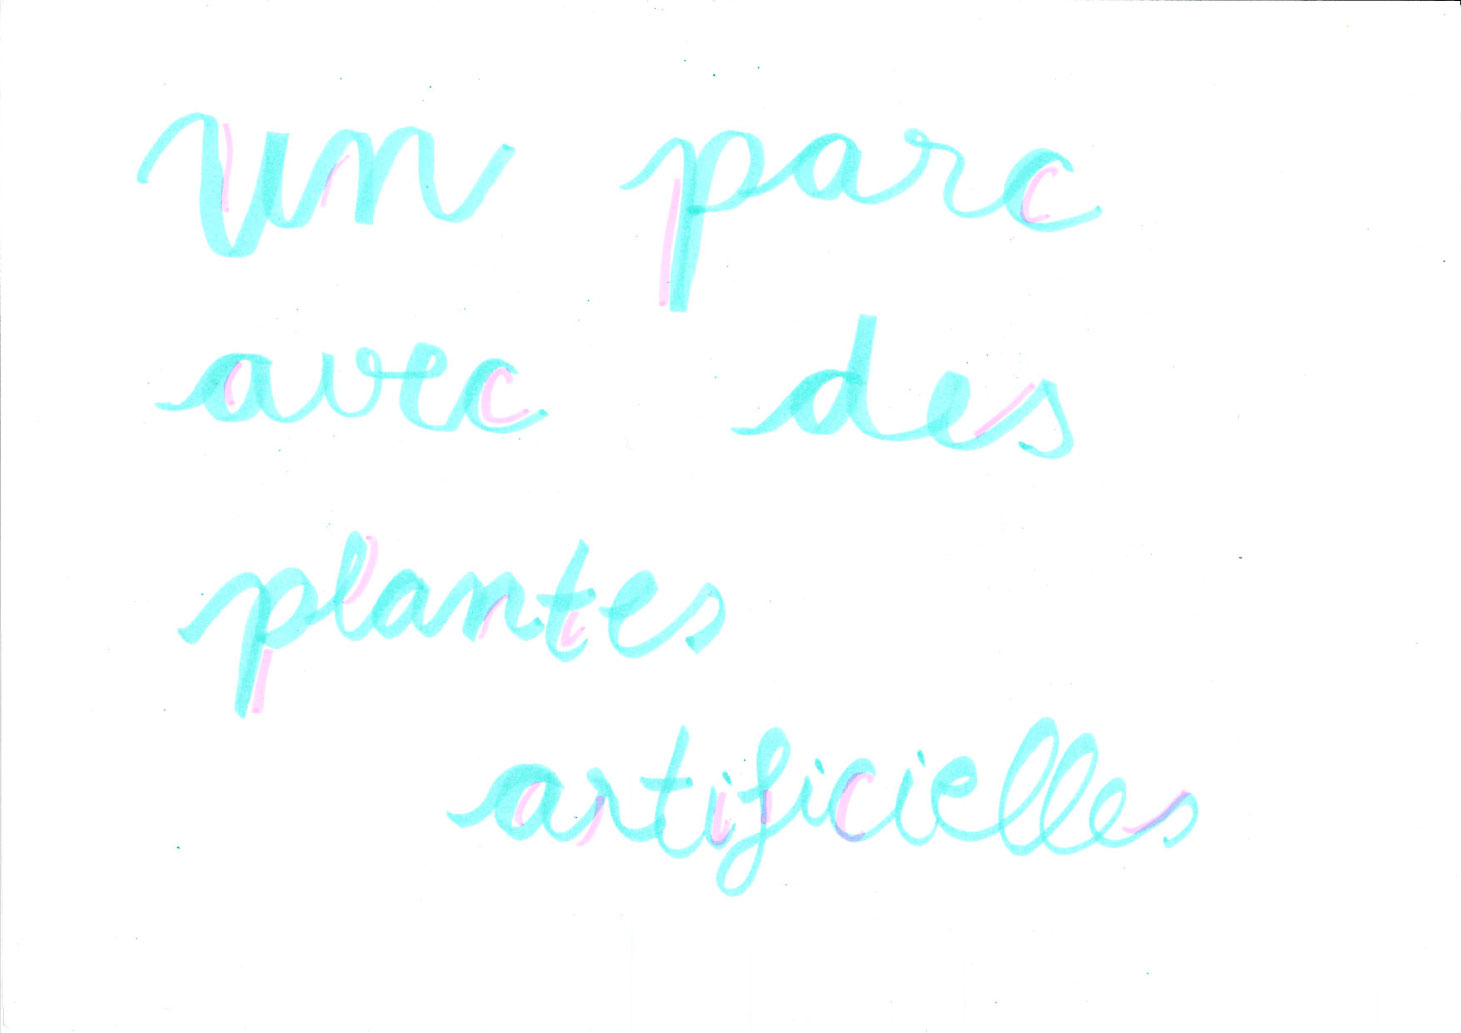 un parc
avec des
plantes
artificielles